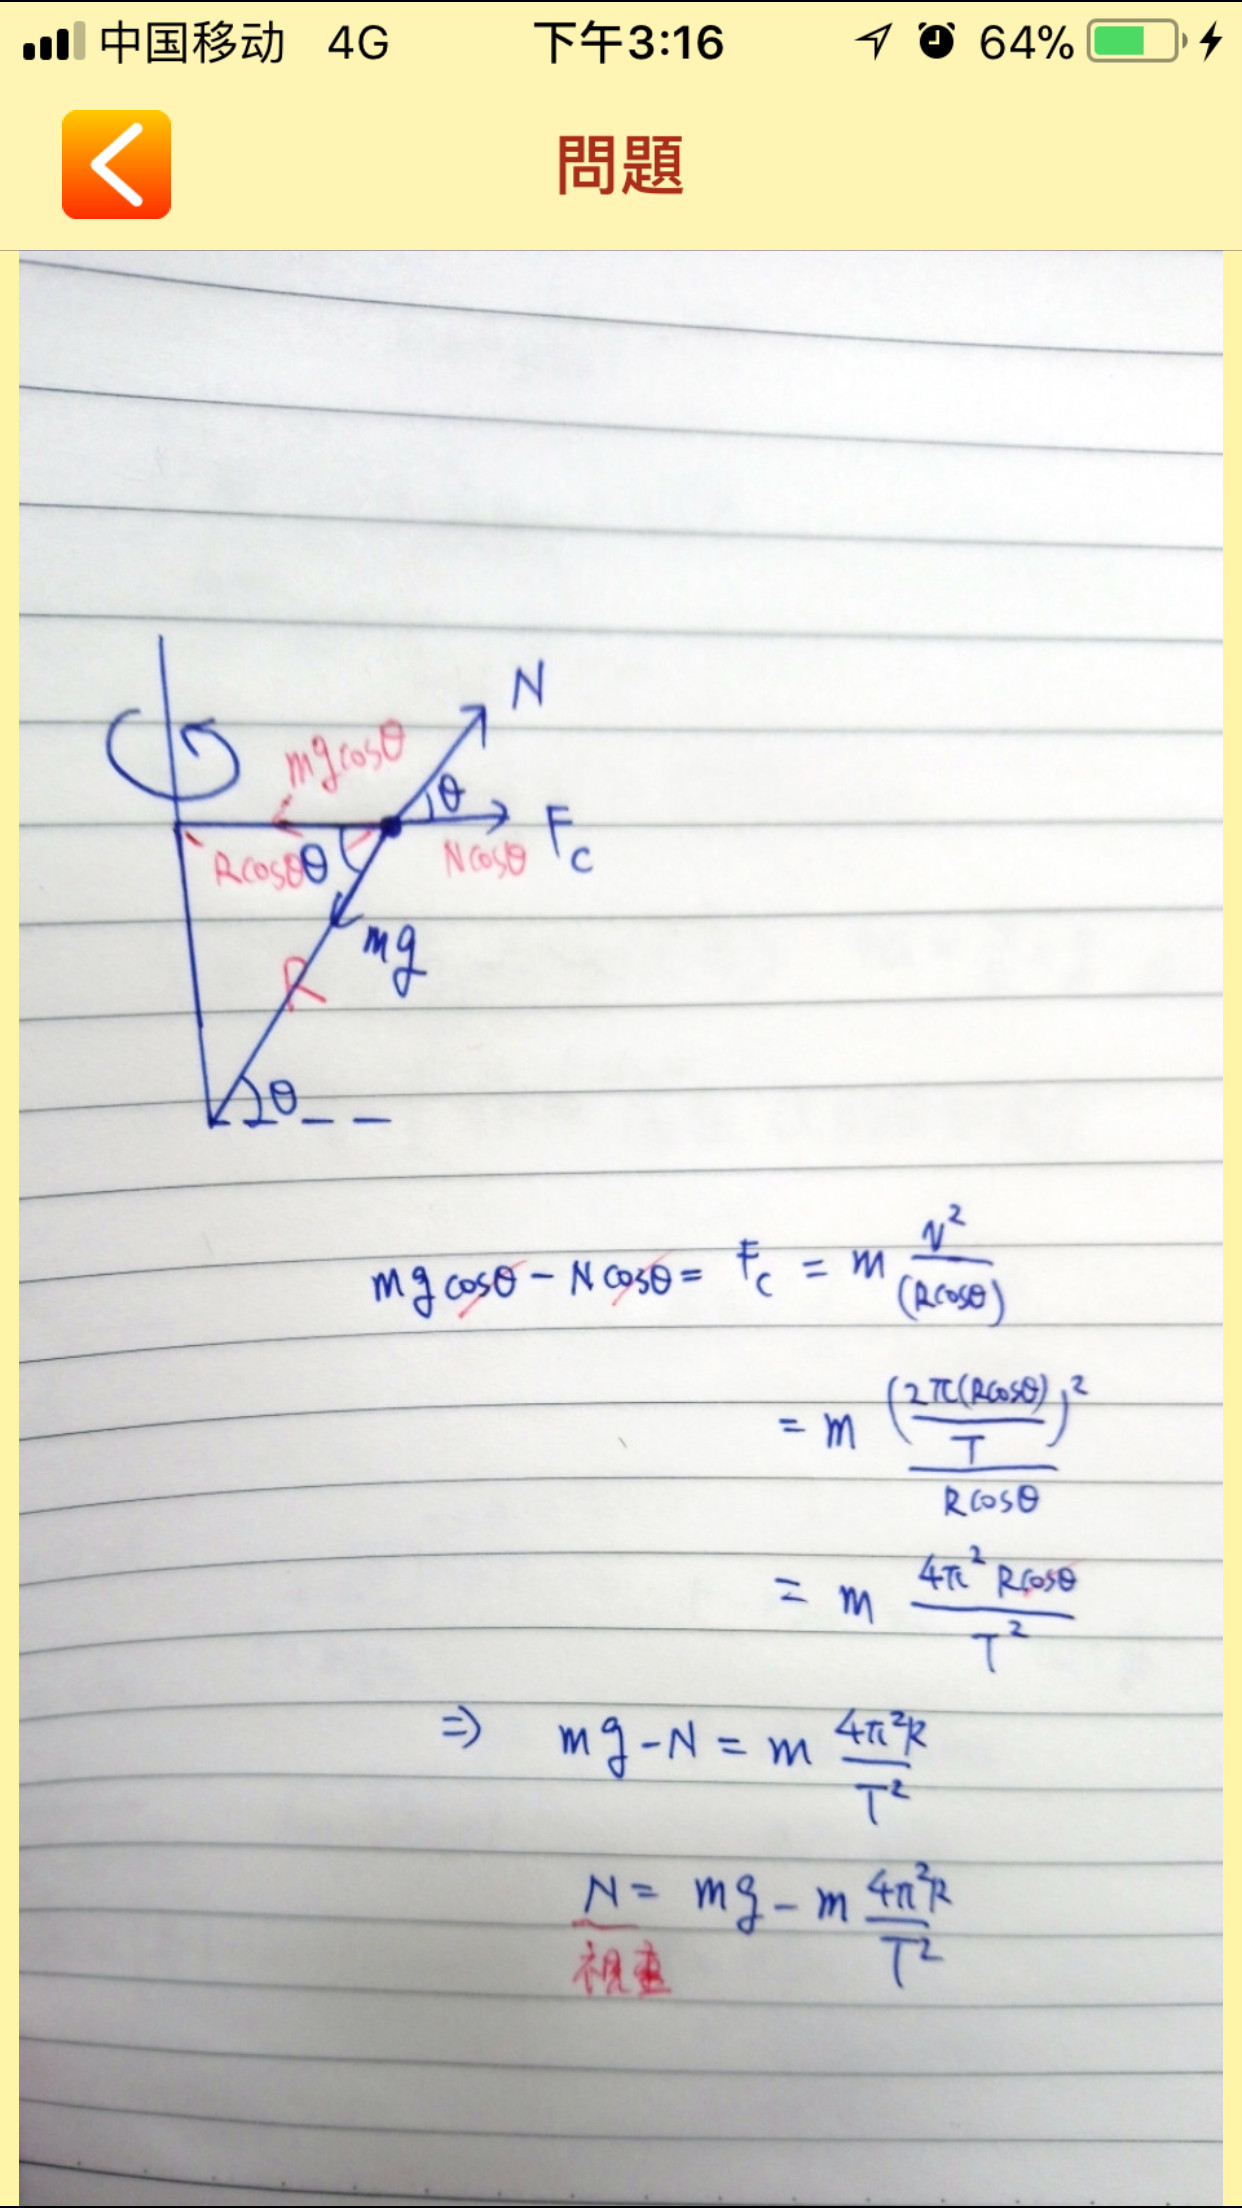 中国移动 4G 下午3:16 64%
問題
N
mgcosθ
θ
F_c
Rcosθ θ Ncosθ
mg
R
θ
mg cosθ − N cosθ = F_c = m v²/(Rcosθ)
= m (2π(Rcosθ)/T)²/Rcosθ
= m 4π² Rcosθ/T²
⇒ mg − N = m 4π²R/T²
N = mg − m 4π²R/T²
視重